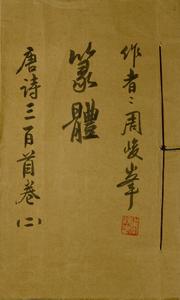 作者：周峻峯
篆體
唐诗三百首卷（二）